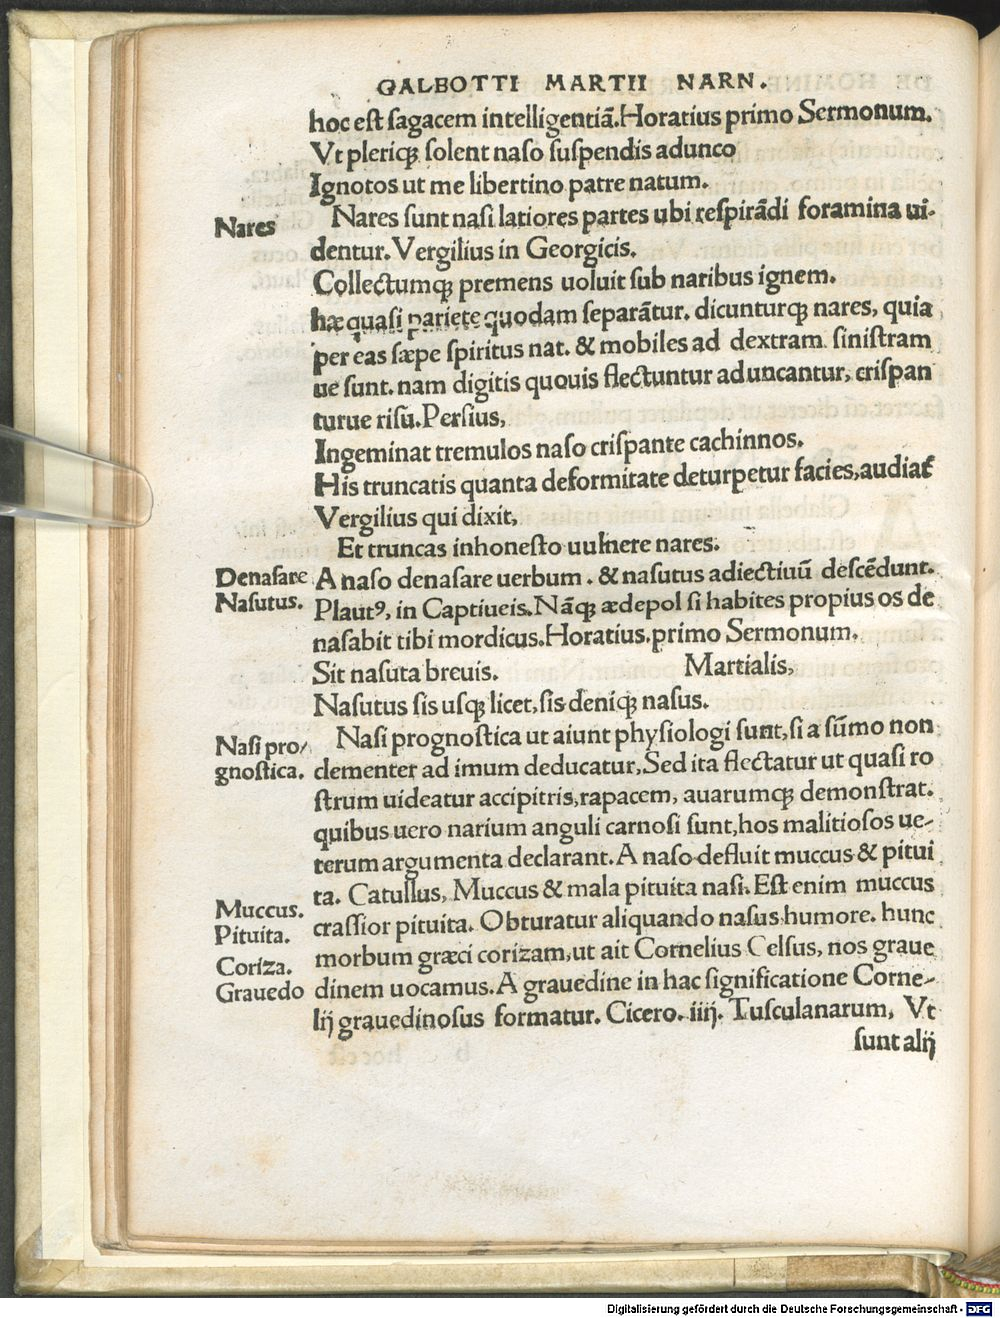 GALEOTTI MARTII NARN.
hoc est sagacem intelligentiā. Horatius primo Sermonum.
Vt pleriqꝫ solent naso suspendis adunco
Ignotos ut me libertino patre natum.
Nares
Nares sunt nasi latiores partes ubi respirādi foramina ui-
dentur. Vergilius in Georgicis.
Collectumqꝫ premens uoluit sub naribus ignem.
hæ quasi pariete quodam separātur. dicunturqꝫ nares, quia
per eas sæpe spiritus nat. & mobiles ad dextram sinistram
ue sunt. nam digitis quouis flectuntur aduncantur, crispan
turue risu. Persius,
Ingeminat tremulos naso crispante cachinnos.
His truncatis quanta deformitate deturpetur facies, audiat
Vergilius qui dixit,
Et truncas inhonesto uulnere nares.
Denasare
A naso denasare uerbum. & nasutus adiectiuū descēdunt.
Nasutus.
Plautꝰ, in Captiueis. Nāqꝫ ædepol si habites propius os de
nasabit tibi mordicus. Horatius. primo Sermonum,
Sit nasuta breuis. Martialis,
Nasutus sis usqꝫ licet, sis deniqꝫ nasus.
Nasi pro/
Nasi prognostica ut aiunt physiologi sunt, si a sūmo non
gnostica.
clementer ad imum deducatur, Sed ita flectatur ut quasi ro
strum uideatur accipitris, rapacem, auarumqꝫ demonstrat.
quibus uero narium anguli carnosi sunt, hos malitiosos ue-
terum argumenta declarant. A naso defluit muccus & pitui
ta. Catullus, Muccus & mala pituita nasi. Est enim muccus
Muccus.
crassior pituita. Obturatur aliquando nasus humore. hunc
Pituita.
morbum græci corizam, ut ait Cornelius Celsus, nos graue
Coriza.
dinem uocamus. A grauedine in hac significatione Corne-
Grauedo
lij grauedinosus formatur. Cicero. iiij. Tusculanarum, Vt
sunt alij
Digitalisierung gefördert durch die Deutsche Forschungsgemeinschaft - DFG